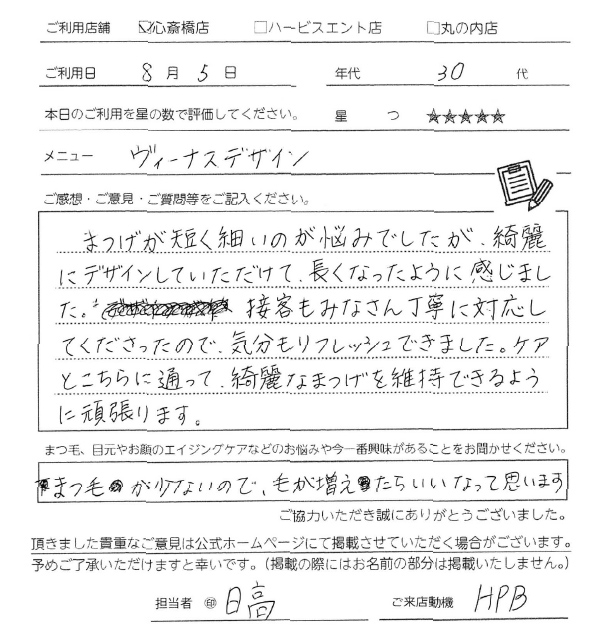 ご利用店舗 ☑心斎橋店 □ハービスエント店 □丸の内店
ご利用日 8 月 5 日 年代 30 代
本日のご利用を星の数で評価してください。 星 つ ★★★★★
メニュー ヴィーナスデザイン
ご感想・ご意見・ご質問等をご記入ください。
まつげが短く細いのが悩みでしたが、綺麗
にデザインしていただけて、長くなったように感じまし
た。接客もみなさん丁寧に対応し
てくださったので、気分もリフレッシュできました。ケア
とこちらに通って、綺麗なまつげを維持できるよう
に頑張ります。
まつ毛、目元やお顔のエイジングケアなどのお悩みや今一番興味があることをお聞かせください。
まつ毛が少ないので、毛が増えたらいいなって思います
ご協力いただき誠にありがとうございました。
頂きました貴重なご意見は公式ホームページにて掲載させていただく場合がございます。
予めご了承いただけますと幸いです。（掲載の際にはお名前の部分は掲載いたしません。）
担当者 ㊞ 日高 ご来店動機 HPB